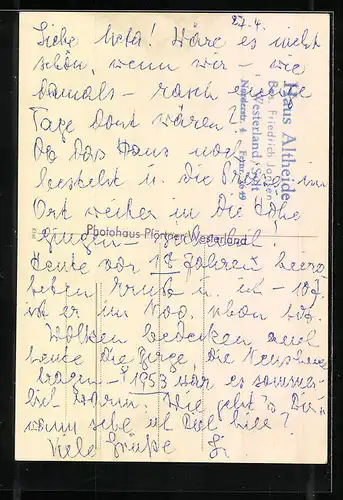 22.4.
Liebe Meta! Wäre es nicht
schön, wenn wir – wie
damals – rasch einige
Tage dort wären?
Ob das Haus noch
besteht u. die Preise im
Ort weiter in die Höhe
gingen –
Heute vor 18 Jahren
Ernst u. ich – 10 J.
ist er im Nov. schon tot.
Wolken bedecken auch
heute die Berge, die
tragen – 1953 war es sommer-
lich warm. Wie geht's Dir,
wann sehe ich Dich hier?
Viele Grüße
Haus Altheide
Bes. Friedrich
Westerland/Sylt
Norderstr. 4
Photohaus Pförtner, Westerland